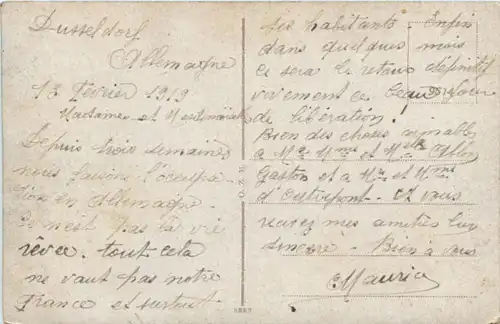 Dusseldorf
Allemagne
13 Fevrier 1919
Madame et
Depuis trois semaines
nous faisons l'occupa-
tion en Allemagne.
Ce n'est pas la vie
rêvée. tout cela
ne vaut pas notre
France et surtout
ses habitants. Enfin
dans quelques mois
ce sera le retour définitif
vivement ce beau jour
de libération!
Bien des choses aimables
a Mr Mme et Melle
Gaston et a Mr et Mme
d'Outrepont. et vous
recevez mes amitiés bien
sincère. Bien à vous
Maurice